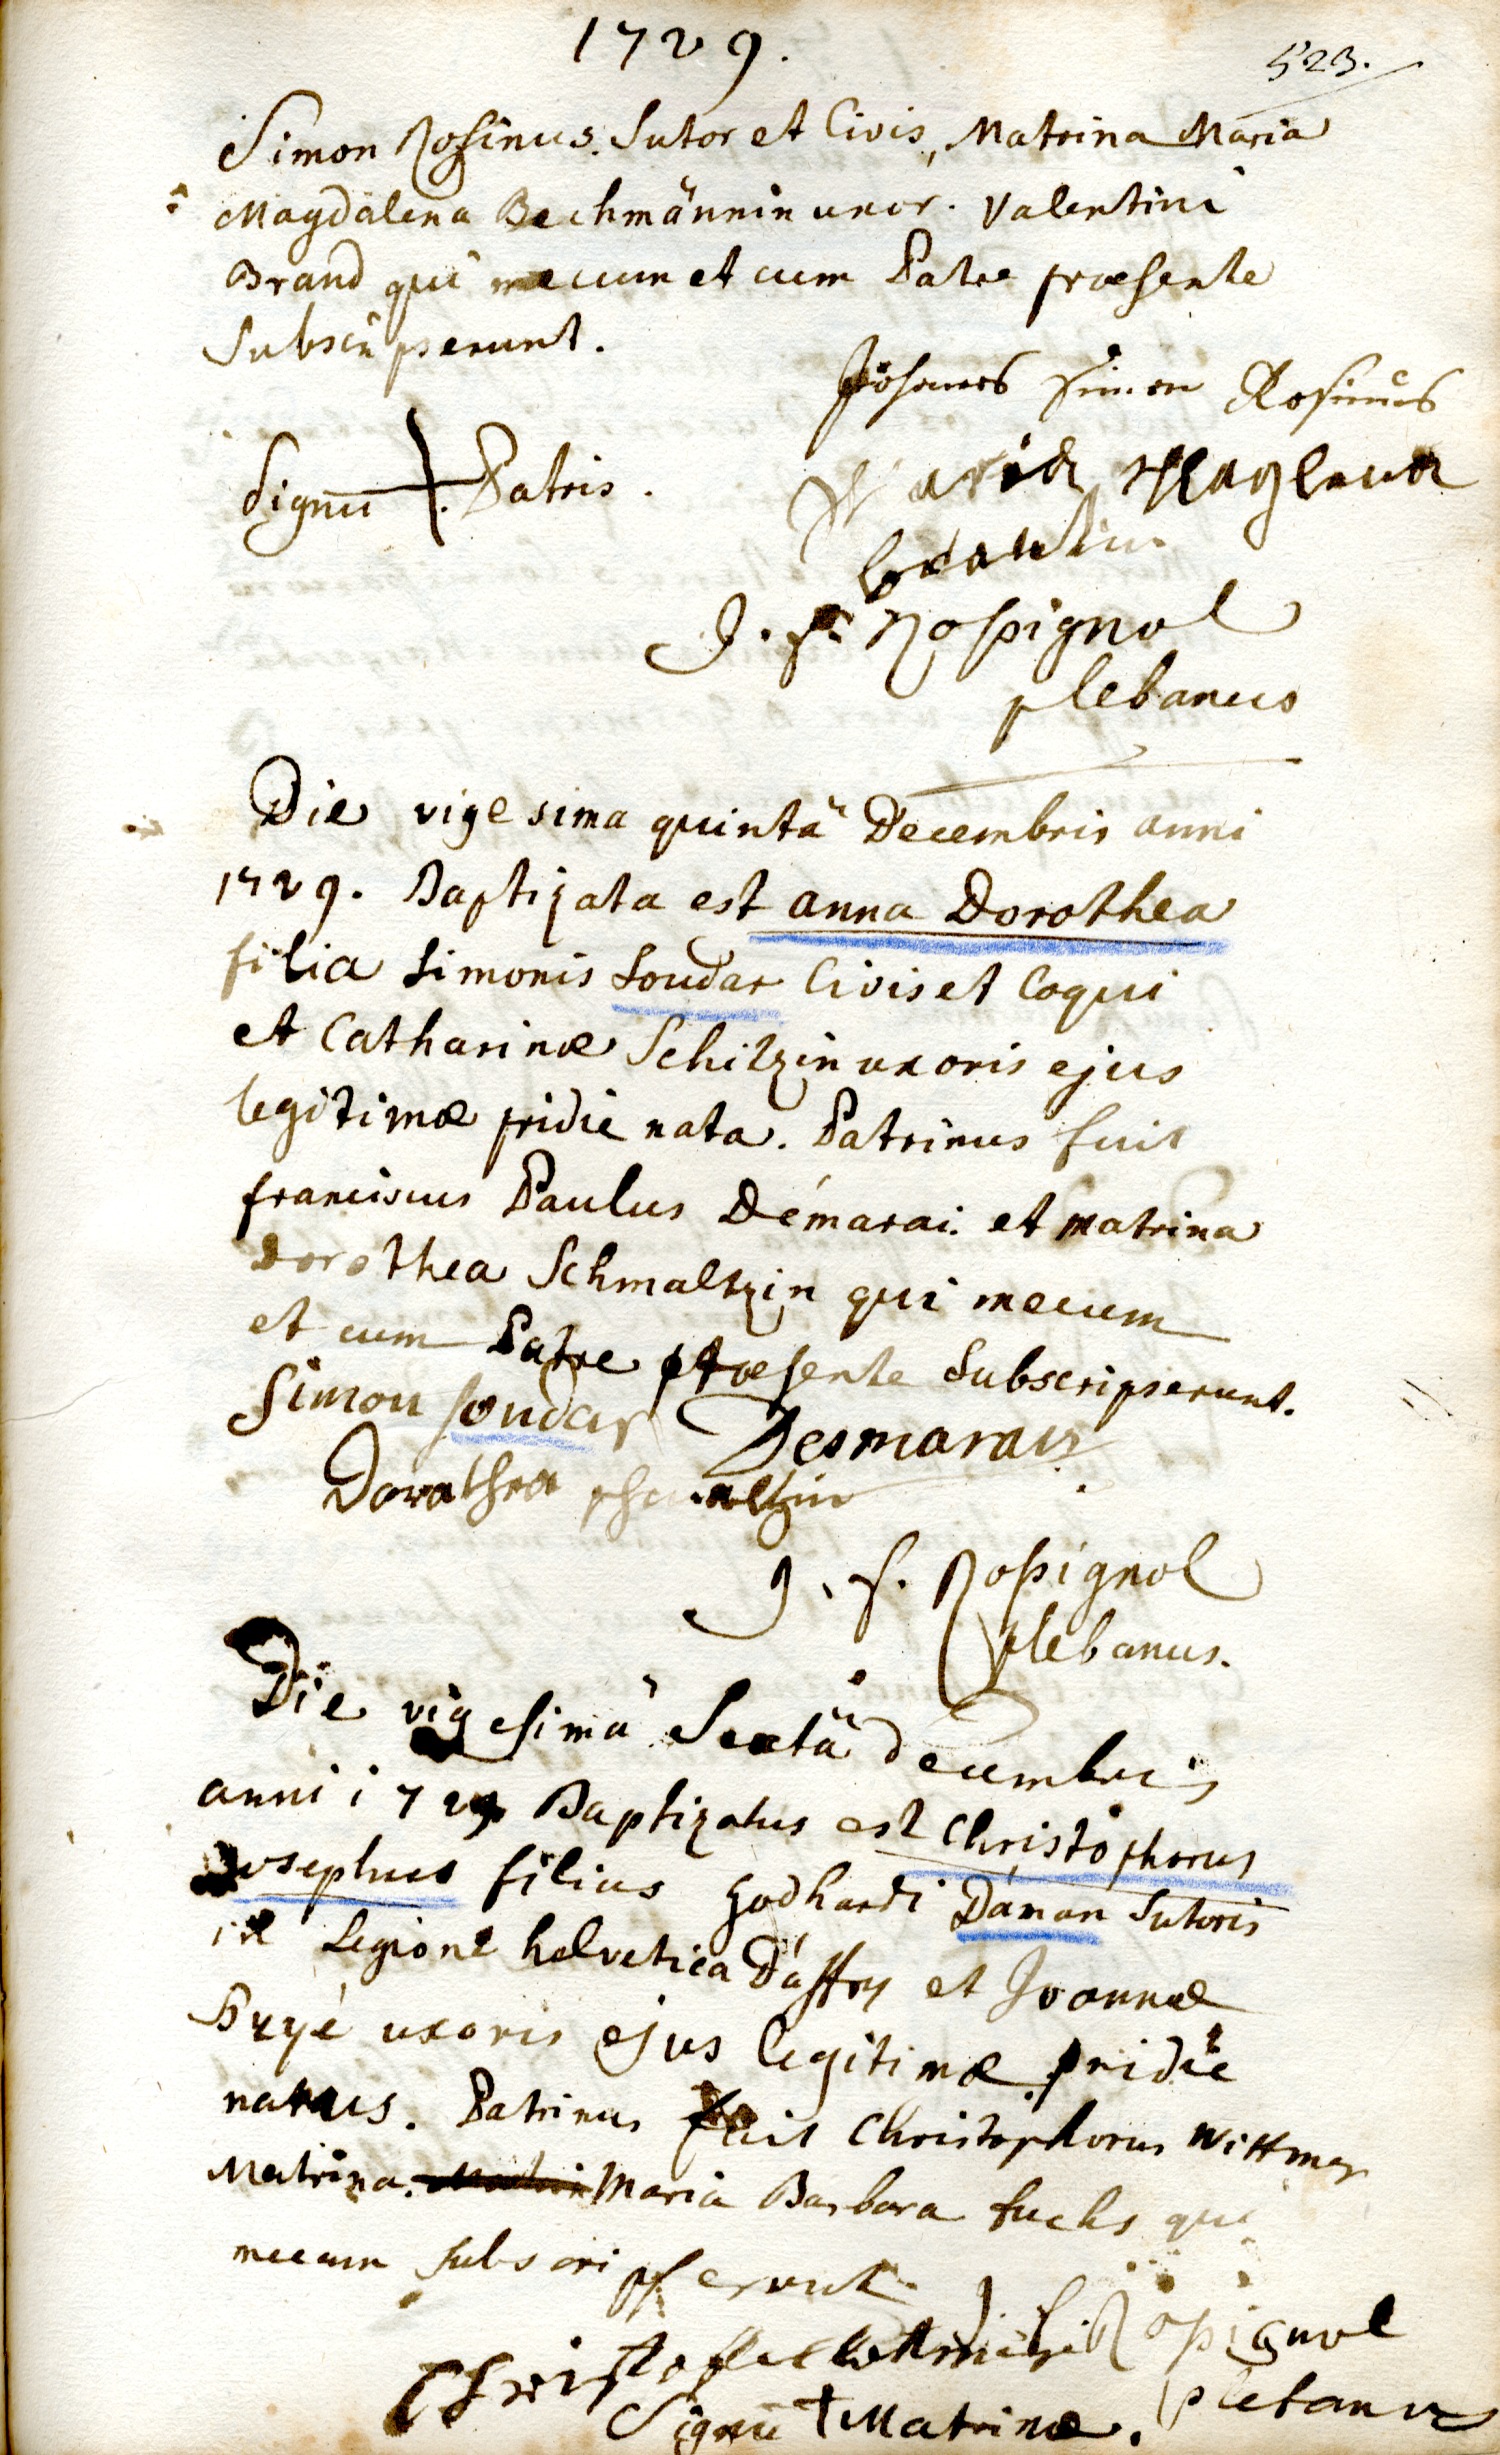 1729.
523.
Simon Rosinus. Sutor et Civis, Matrina Maria
Magdalena Bechmännin uxor. Valentini
Brand qui mecum et cum Patre præsente
Subscripserunt.
Johannes Simon Rosinus
Signū + Patris.
Maria Maglena
brandin
J. f. Rossignol
plebanus
Die vigesima quintâ Decembris anni
1729. Baptizata est anna Dorothea
filia Simonis Soudar Civis et Coqui
et Catharinæ Schilzin uxoris ejus
legitimæ pridie nata. Patrinus fuit
franciscus Paulus Démarai. et matrina
dorothea Schmaltzin qui mecum
et cum Patre præsente Subscripserunt.
Simon soudar Desmarais
Dorathea
J. f. Rossignol
plebanus.
Die vigesimâ Sextâ decembris
anni 1729 Baptizatus est Christophorus
Josephus filius Godhardi Daman Sutoris
Legione helvetica D'affry et Joannæ
uxoris ejus legitimæ pridie
natus. Patrinus fuit Christophorus Wittmer
Matrina. Maria Barbara fuchs qui
mecum subscripserunt.
J. f. Rossignol
plebanus
Signū + Matrinæ.